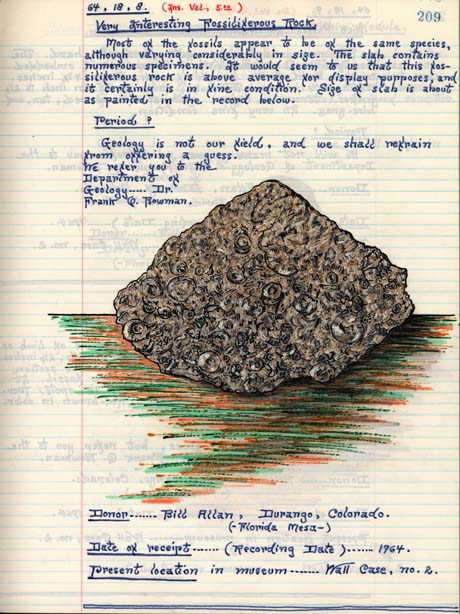 64, 18, 8. (Ins. Val., 5.00)
209
Very Interesting Fossiliferous Rock.
Most of the fossils appear to be of the same species,
although varying considerably in size. The slab contains
numerous specimens. It would seem to us that this fos-
siliferous rock is above average for display purposes, and
it certainly is in fine condition. Size of slab is about
as painted in the record below.
Period ?
Geology is not our field, and we shall refrain
from offering a guess.
We refer you to the
Department of
Geology---- Dr.
Frank Q. Bowman.
Donor------ Bill Allan, Durango, Colorado.
(-Florida Mesa-)
Date of receipt----- (Recording Date)----- 1964.
Present location in museum ------ Wall Case, no. 2.